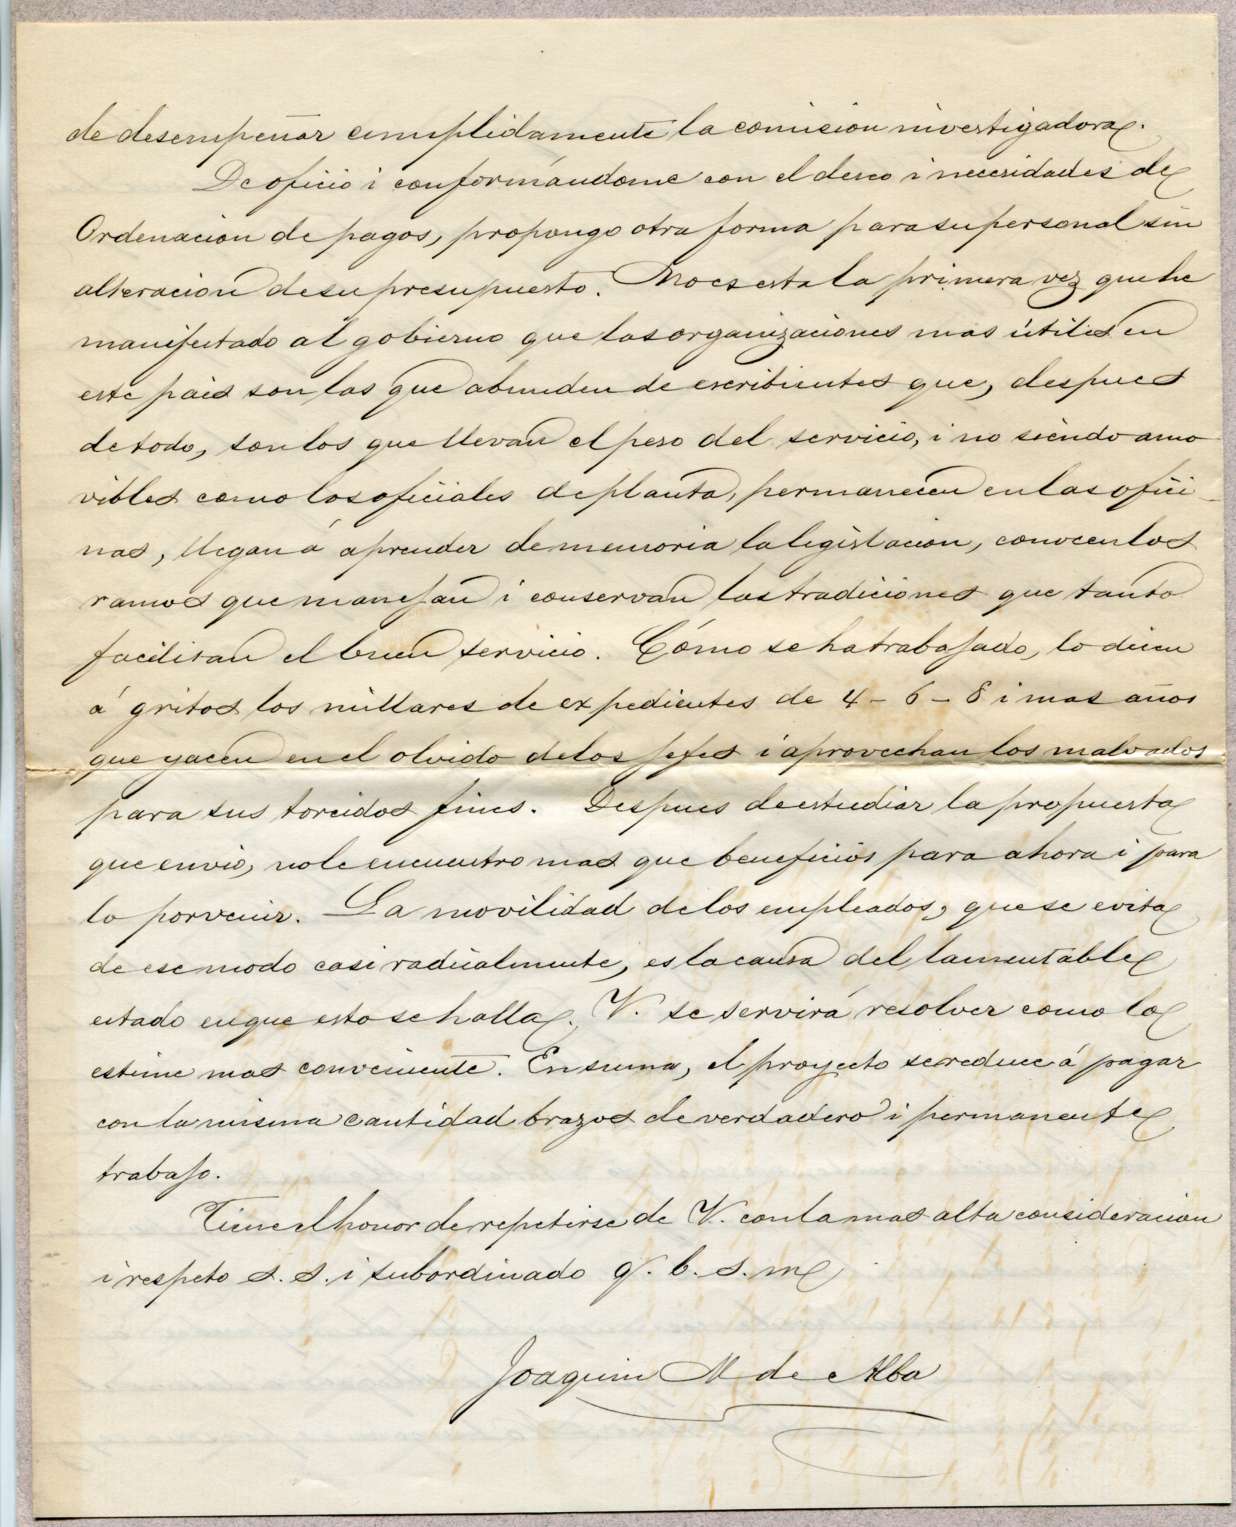 de desempeñar cumplidamente la comision investigadora.
De oficio i conformándome con el deseo i necesidades de
Ordenacion de pagos, propongo otra forma para su personal sin
alteracion de su presupuesto. No es esta la primera vez que he
manifestado al gobierno que las organizaciones mas útiles en
este pais son las que abunden de escribientes que, despues
de todo, son los que llevan el peso del servicio, i no siendo amo
vibles como los oficiales de planta, permanecen en las ofici-
nas, llegan á aprender de memoria la legislacion, conocen los
ramos que manejan i conservan las tradiciones que tanto
facilitan el buen servicio. Cómo se ha trabajado, lo dicen
á gritos los millares de expedientes de 4 - 6 - 8 i mas años
que yacen en el olvido de los jefes i aprovechan los malvados
para sus torcidos fines. Despues de estudiar la propuesta
que envio, no le encuentro mas que beneficios para ahora i para
lo porvenir. La movilidad de los empleados, que se evita
de ese modo casi radicalmente, es la causa del lamentable
estado en que esto se halla. V. se servirá resolver como lo
estime mas conveniente. En suma, el proyecto se reduce á pagar
con la misma cantidad brazos de verdadero i permanente
trabajo.
Tiene el honor de repetirse de V. con la mas alta consideracion
i respeto s. s. i subordinado q. b. s. m.
Joaquin M de Alba